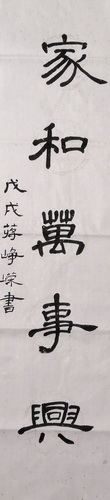 家和萬事興
戊戌蔣崢嶸書